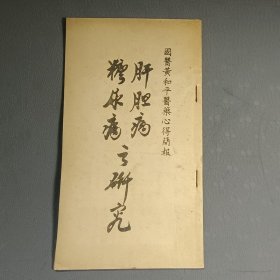 國醫黃和平醫藥心得簡報
肝胆病
糖尿病之研究